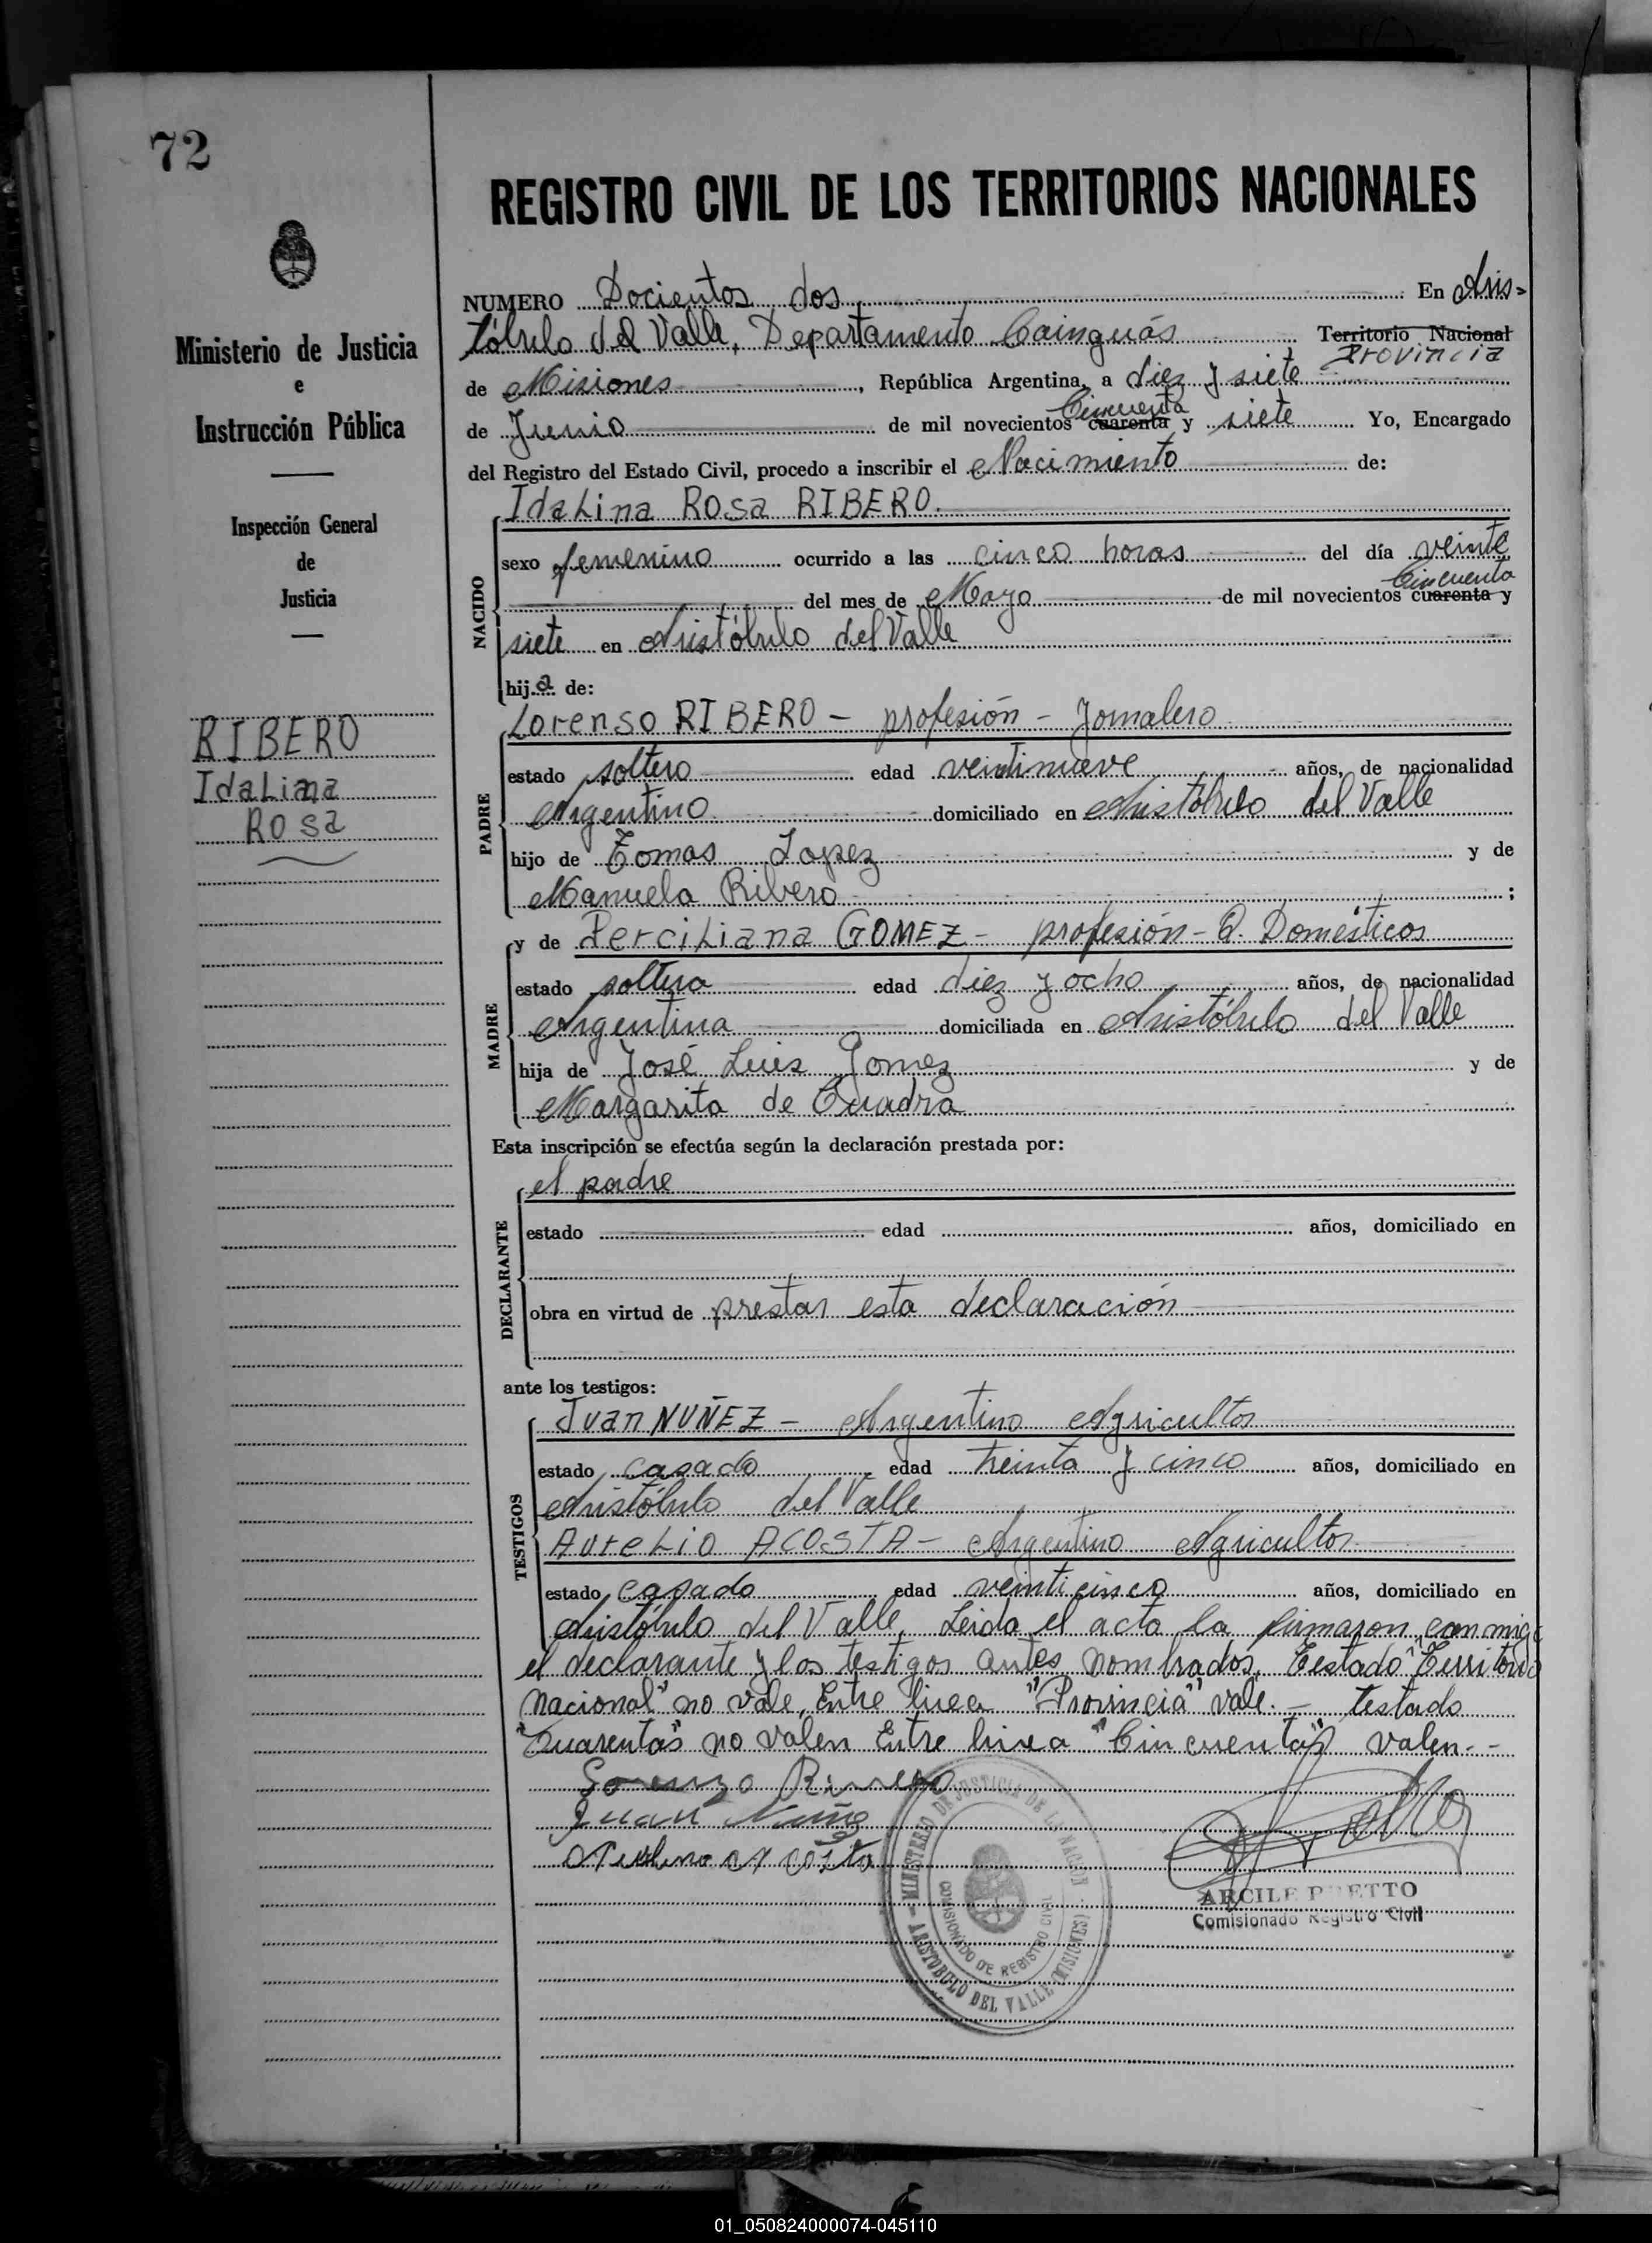 72
REGISTRO CIVIL DE LOS TERRITORIOS NACIONALES
Ministerio de Justicia
e
Instrucción Pública
Inspección General
de
Justicia
RIBERO
Idalina
Rosa
NUMERO Docientos dos En Aris-
tóbulo del Valle, Departamento Cainguás Territorio Nacional
Provincia
de Misiones, República Argentina, a diez y siete
Cincuenta
de Junio de mil novecientos cuarenta y siete Yo, Encargado
del Registro del Estado Civil, procedo a inscribir el Nacimiento de:
NACIDO
Idalina Rosa RIBERO.
sexo femenino ocurrido a las cinco horas del día veinte
Cincuenta
del mes de Mayo de mil novecientos cuarenta y
siete en Aristóbulo del Valle
hija de:
PADRE
Lorenso RIBERO - profesión - Jornalero
estado soltero edad veintinueve años, de nacionalidad
Argentino domiciliado en Aristóbulo del Valle
hijo de Tomas Lopez y de
Manuela Ribero ;
MADRE
y de Perciliana GOMEZ - profesión - Q. Domésticos
estado soltera edad diez y ocho años, de nacionalidad
Argentina domiciliada en Aristóbulo del Valle
hija de José Luis Gomez y de
Margarita de Cuadra
Esta inscripción se efectúa según la declaración prestada por:
DECLARANTE
el padre
estado edad años, domiciliado en
obra en virtud de prestar esta declaración
ante los testigos:
TESTIGOS
Juan NUÑEZ - Argentino Agricultor
estado casado edad treinta y cinco años, domiciliado en
Aristóbulo del Valle
Aurelio ACOSTA - Argentino Agricultor
estado casado edad veinticinco años, domiciliado en
Aristóbulo del Valle. Leida el acta la firmaron conmigo
el declarante y los testigos antes nombrados. Testado "Territorio
Nacional" no vale, Entre linea "Provincia" vale. - testado
"Cuarentas" no valen Entre linea "Cincuentas" valen. -
Lorenzo Rivero
Juan Nuñez
MINISTERIO DE JUSTICIA DE LA NACION
COMISIONADO DE REGISTRO CIVIL
ARISTOBULO DEL VALLE (MISIONES)
ARCILE PRETTO
Comisionado Registro Civil
01_050824000074-045110